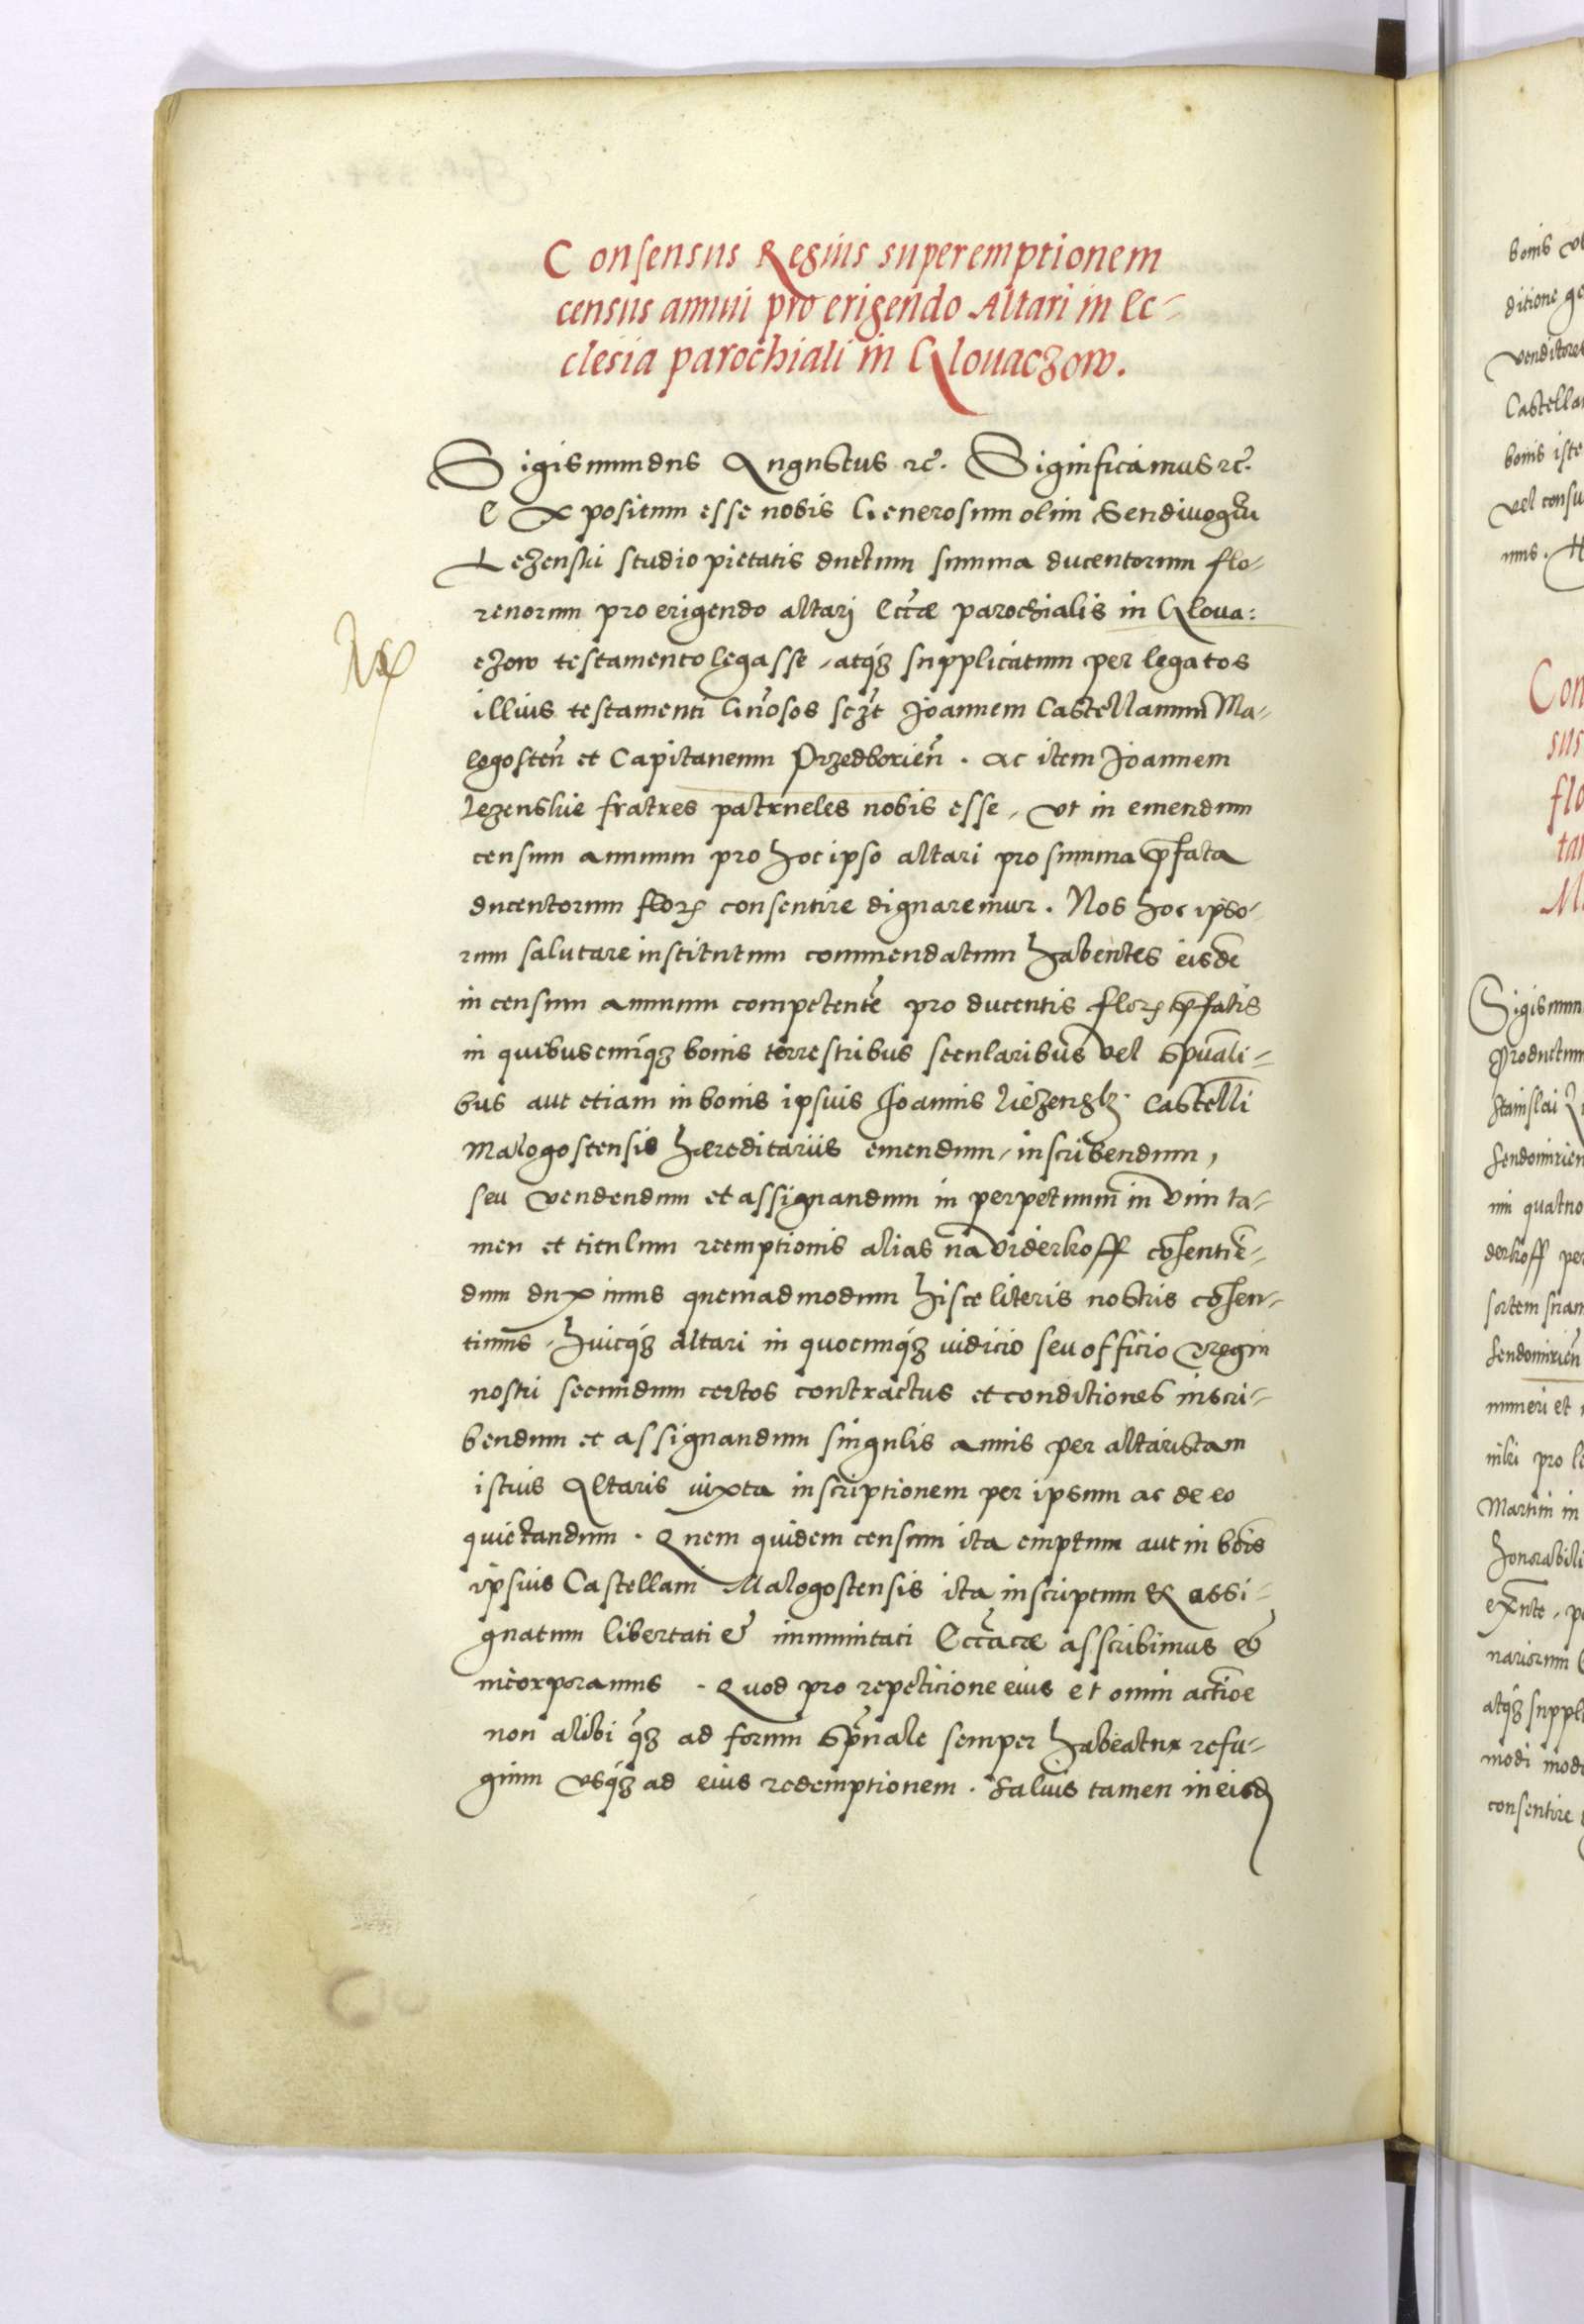 Consensus Regius super emptionem
census annui pro erigendo Altari in Ec-
clesia parochiali in Glovaczow.
Sigismundus Augustus rc. Significamus rc.
Expositum esse nobis Generosum olim Sendivogiū
Lezenski studio pietatis ductum summa ducentorum flo-
renorum pro erigendo altarj Eccæ parochialis in Glova:
czow testamento legasse, atq3 supplicatum per legatos
illius testamenti Gnosos sczt Joannem Castellanum Ma-
logosten̄ et Capitaneum Przedborien̄. ac item Joannem
Lezenskie fratres patrueles nobis esse, ut in emendum
censum annuum pro hoc ipso altari pro summa p̄fata
ducentorum flor consentire dignaremur. Nos hoc ipso-
rum salutare institutum commendatum habentes eisdē
in censum annuum competentē pro ducentis flor p̄fatis
in quibuscunq3 bonis terrestribus secularibus vel spūali-
bus aut etiam in bonis ipsius Joannis Liezensk. Castelli
Malogostensis hæreditariis emendum, inscribendum,
seu vendendum et assignandum in perpetuum in vim ta-
men et titulum reemptionis alias na viderkoff cōsentiē-
dum duximus quemadmodum hisce literis nostris cōsen-
timus, huicq3 altari in quocunq3 iudicio seu officio regni
nostri secundum certos contractus et conditiones inscri-
bendum et assignandum singulis annis per altaristam
istius Altaris iuxta inscriptionem per ipsum ac de eo
quietandum. Quem quidem censum ita emptum aut in bōis
ipsius Castellani Malogostensis ita inscriptum & assi-
gnatum libertati & immunitati Eccācæ asscribimus &
incorporamus. Quod pro repeticione eius et omni actiōe
non alibi q̄3 ad forum Spūale semper habeatur refu-
gium usq3 ad eius redemptionem. Salvis tamen in eisd
bonis
ditione
venditores
Castella
bonis iste
vel consu
mus. H
Con
sus
flo
tar
M
Sigismun
Productum
Stanislai
Sendomirien
mi quatuo
derkoff per
sortem suam
Sendomirien̄
numeri et
pro
Martini in
honorabili
nariorum
atq3 suppl
modi modi
consentire